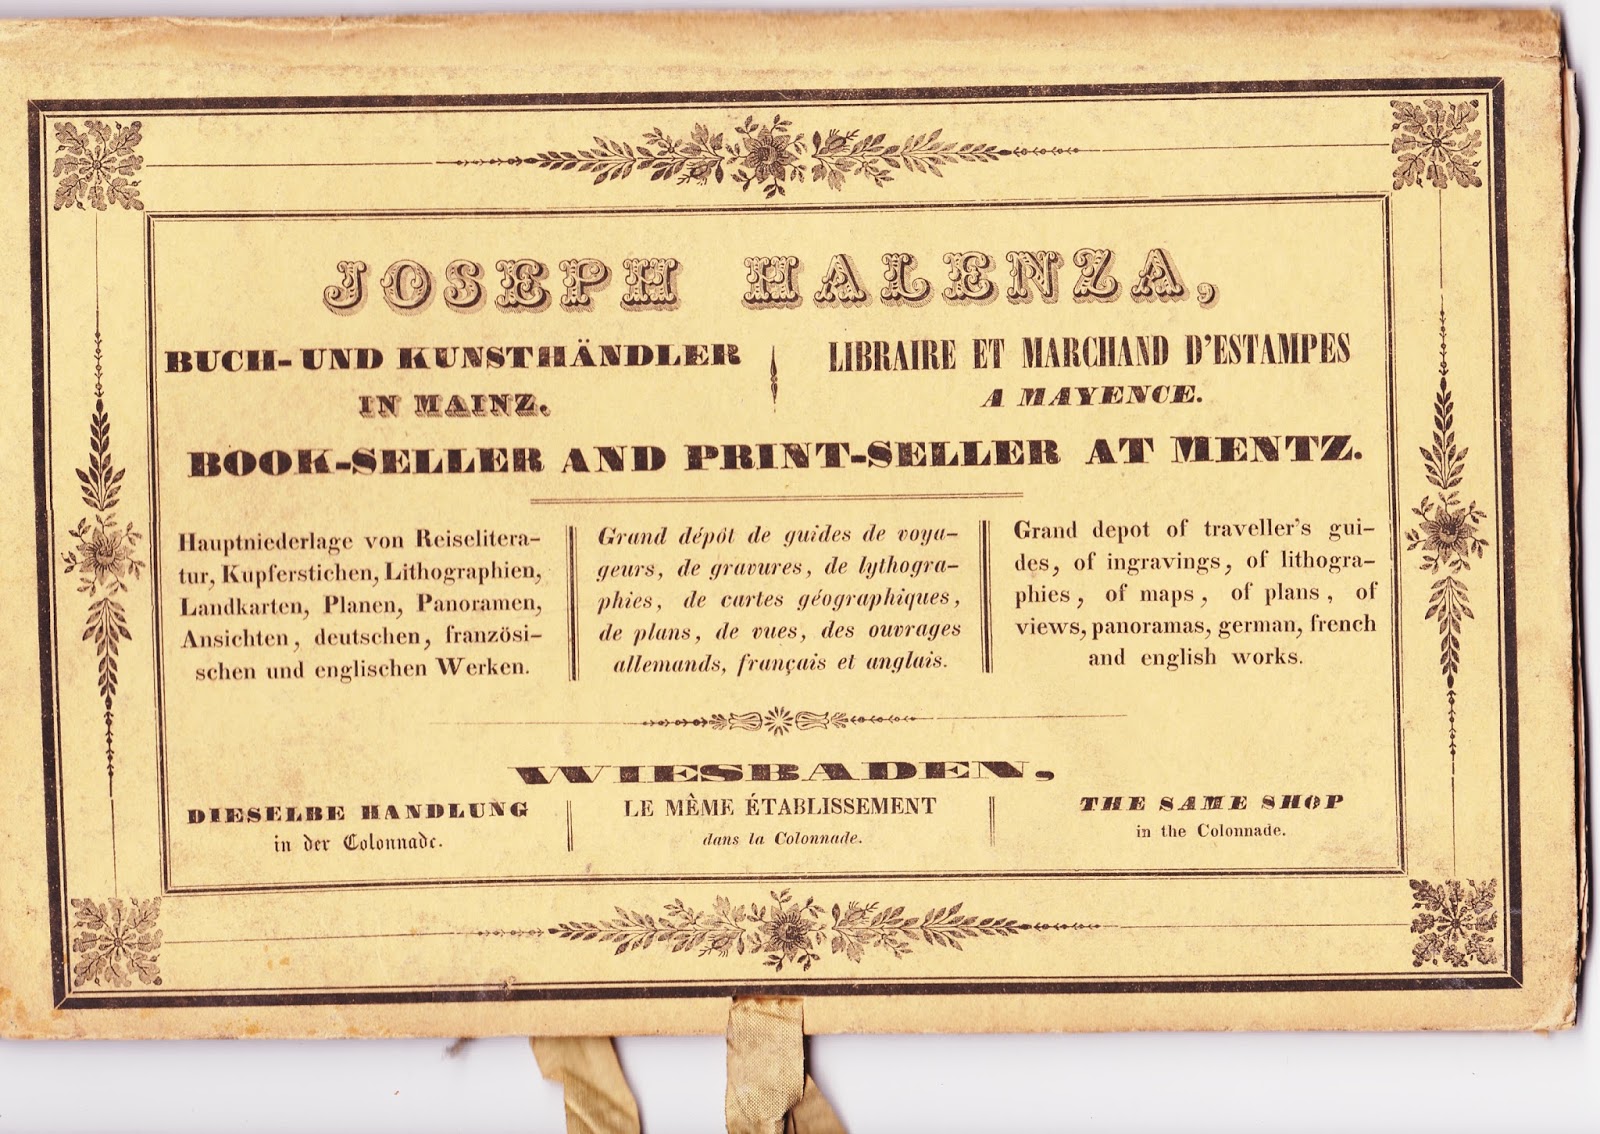 JOSEPH HALENZA,
BUCH- UND KUNSTHÄNDLER
IN MAINZ.
LIBRAIRE ET MARCHAND D'ESTAMPES
A MAYENCE.
BOOK-SELLER AND PRINT-SELLER AT MENTZ.
Hauptniederlage von Reiselitera-
tur, Kupferstichen, Lithographien,
Landkarten, Planen, Panoramen,
Ansichten, deutschen, französi-
schen und englischen Werken.
Grand dépôt de guides de voya-
geurs, de gravures, de lythogra-
phies, de cartes géographiques,
de plans, de vues, des ouvrages
allemands, français et anglais.
Grand depot of traveller's gui-
des, of ingravings, of lithogra-
phies, of maps, of plans, of
views, panoramas, german, french
and english works.
WIESBADEN,
DIESELBE HANDLUNG
in der Colonnade.
LE MÊME ÉTABLISSEMENT
dans la Colonnade.
THE SAME SHOP
in the Colonnade.